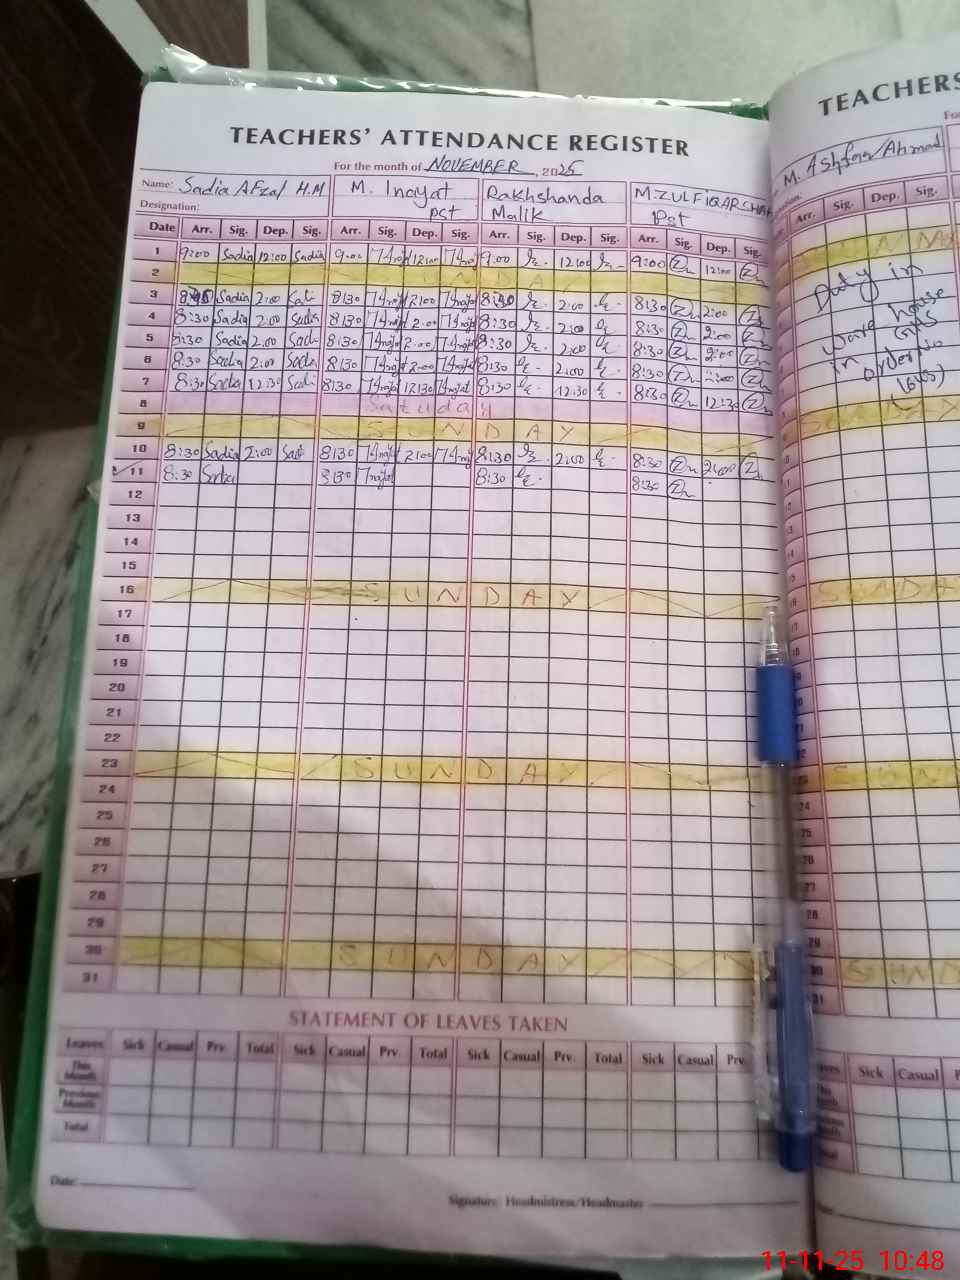 TEACHERS' ATTENDANCE REGISTER
For the month of NOVEMBER, 2025
Name: Sadia Afzal H.M M. Inayat Rakhshanda M.ZULFIQAR SHAH
Designation: Pst Malik Pst
Date Arr. Sig. Dep. Sig. Arr. Sig. Dep. Sig. Arr. Sig. Dep. Sig. Arr. Sig. Dep. Sig.
1 9:00 Sadia 12:00 Sadia 9:00 12:00 9:00 12:00 9:00 12:00
2 N D A
3 Sadia 2:00 8:30 2:00 2:00 8:30 2:00
4 8:30 Sadia 2:00 Sadi 8:30 2:00 8:30 2:00 8:30 2:00
5 8:30 Sadia 2:00 Sadi 8:30 2:00 8:30 2:00 8:30 2:00
6 8:30 Sadia 2:00 Sadia 8:30 2:00 8:30 2:00 8:30
7 8:30 Sadia 12:30 Sadi 8:30 12:30 8:30 12:30 8:30 12:30
8 Saturday
9 SUNDAY
10 8:30 Sadia 2:00 Sadi 8:30 2:00 8:30 2:00 8:30 2:00
11 8:30 8:30 8:30 8:30
12
13
14
15
16 SUNDAY
17
18
19
20
21
22
23 SUNDAY
24
25
26
27
28
29
30 SUNDAY
31
STATEMENT OF LEAVES TAKEN
Leaves Sick Casual Prv. Total Sick Casual Prv. Total Sick Casual Prv. Total Sick Casual Prv
This Month
Previous Month
Total
Date:
Signature: Headmistress/Headmaster
TEACHERS
M. Ashfaq Ahmad
Arr. Sig. Dep. Sig.
SUN
Duty in
ware house
in
order No
SUNDAY
SUNDA
SUN
SUND
Sick Casual
11-11-25 10:48